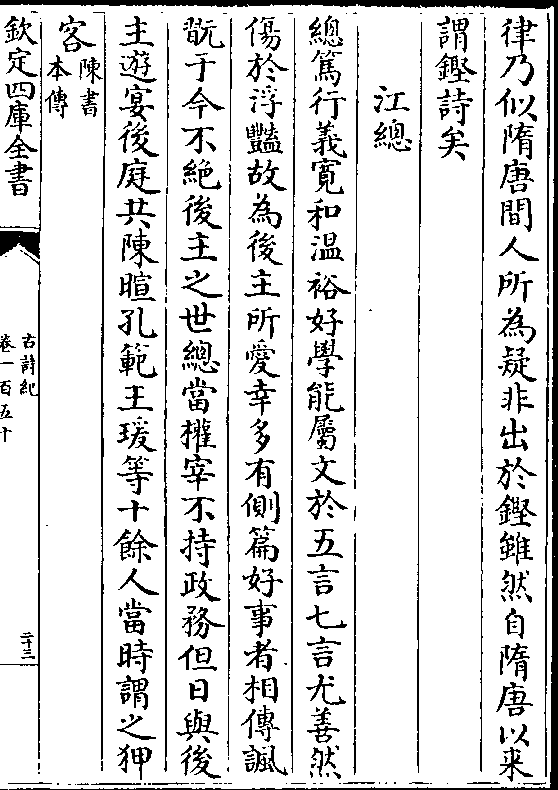 律乃似隋唐間人所為疑非出於鏗雖然自隋唐以来
謂鏗詩矣
江總
總篤行義寛和温裕好學能屬文於五言七言尤善然
傷於浮豔故為後主所愛幸多有側篇好事者相傳諷
翫于今不絶後主之世總當權宰不持政務但日與後
主遊宴後庭共陳暄孔範王瑗等十餘人當時謂之狎
客陳書
本傳
欽定四庫全書
古詩紀
卷一百五十
二十三